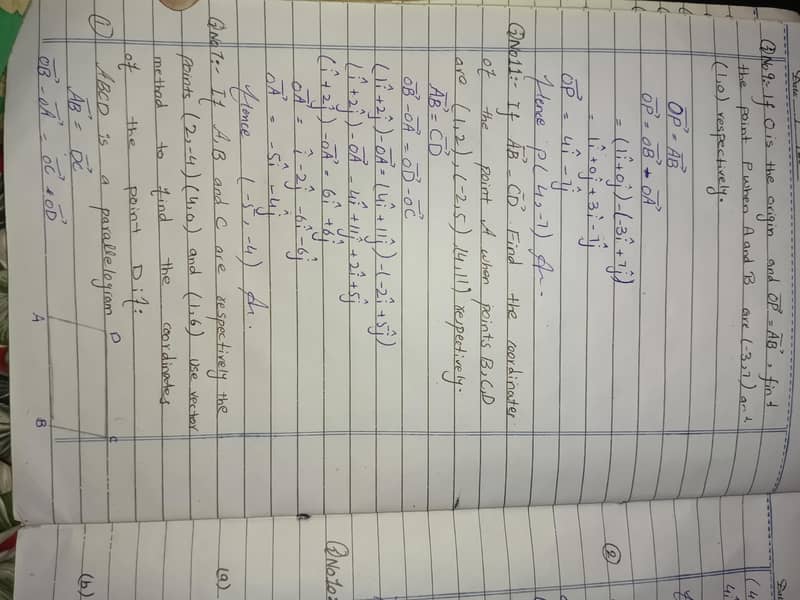 Q No 9:- If O is the origin and OP = AB, find
the point P when A and B are (-3,7) and
(1,0) respectively.
OP = AB
OP = OB - OA
= (1î+0ĵ)-(-3î+7ĵ)
= 1î+0ĵ+3î-7ĵ
OP = 4î-7ĵ
Hence P(4,-7) An.
Q No 11:- If AB = CD. Find the coordinates
of the point A when points B,C,D
are (1,2),(-2,5),(4,11) respectively.
AB = CD
OB - OA = OD - OC
(1î+2ĵ)-OA = (4î+11ĵ)-(-2î+5ĵ)
(î+2ĵ)-OA = 4î+11ĵ+2î+5ĵ
(î+2ĵ)-OA = 6î+6ĵ
OA = î-2ĵ-6î-6ĵ
OA = -5î-4ĵ
Hence (-5,-4) An.
Q No 7:- If A,B and C are respectively the
points (2,-4)(4,0) and (1,6) Use vector
method to find the coordinates
of the point D if:
(1) ABCD is a parallelogram
AB = DC
OB - OA = OC - OD
D
C
A
B
(2)
Q No 10:
(a)
(b)